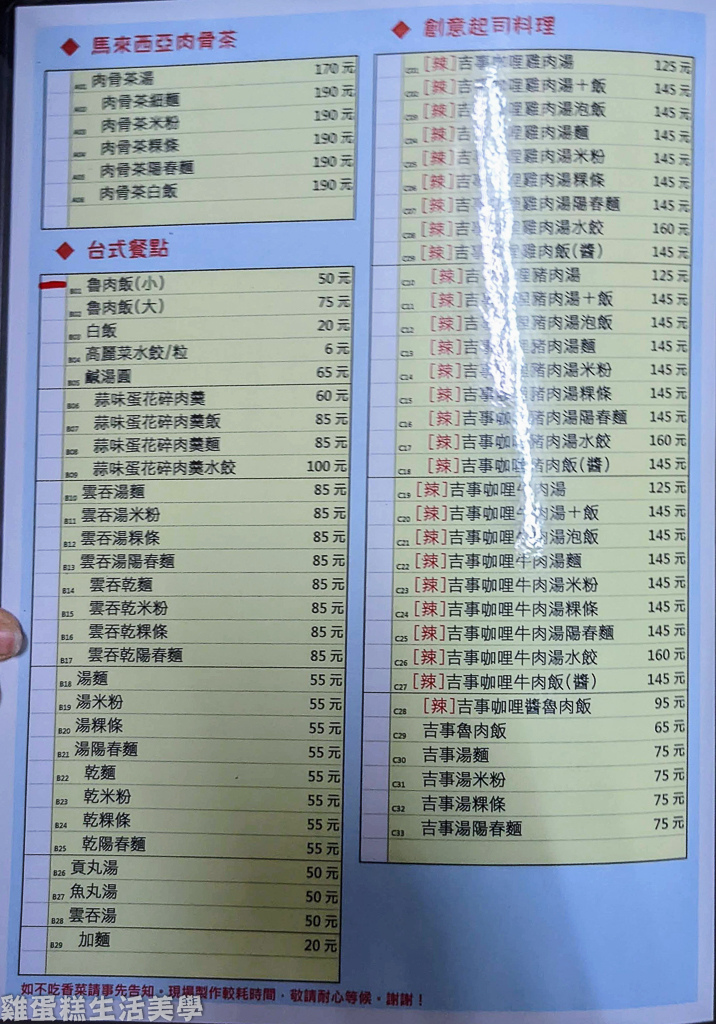 ◆ 馬來西亞肉骨茶
A01 肉骨茶湯 170元
A02 肉骨茶細麵 190元
A03 肉骨茶米粉 190元
A04 肉骨茶粿條 190元
A05 肉骨茶陽春麵 190元
A06 肉骨茶白飯 190元
◆ 台式餐點
B01 魯肉飯(小) 50元
B02 魯肉飯(大) 75元
B03 白飯 20元
B04 高麗菜水餃/粒 6元
B05 鹹湯圓 65元
B06 蒜味蛋花碎肉羹 60元
B07 蒜味蛋花碎肉羹飯 85元
B08 蒜味蛋花碎肉羹麵 85元
B09 蒜味蛋花碎肉羹水餃 100元
B10 雲吞湯麵 85元
B11 雲吞湯米粉 85元
B12 雲吞湯粿條 85元
B13 雲吞湯陽春麵 85元
B14 雲吞乾麵 85元
B15 雲吞乾米粉 85元
B16 雲吞乾粿條 85元
B17 雲吞乾陽春麵 85元
B18 湯麵 55元
B19 湯米粉 55元
B20 湯粿條 55元
B21 湯陽春麵 55元
B22 乾麵 55元
B23 乾米粉 55元
B24 乾粿條 55元
B25 乾陽春麵 55元
B26 貢丸湯 50元
B27 魚丸湯 50元
B28 雲吞湯 50元
B29 加麵 20元
◆ 創意起司料理
C01 [辣]吉事咖哩雞肉湯 125元
C02 [辣]吉事咖哩雞肉湯+飯 145元
C03 [辣]吉事咖哩雞肉湯泡飯 145元
C04 [辣]吉事咖哩雞肉湯麵 145元
C05 [辣]吉事咖哩雞肉湯米粉 145元
C06 [辣]吉事咖哩雞肉湯粿條 145元
C07 [辣]吉事咖哩雞肉湯陽春麵 145元
C08 [辣]吉事咖哩雞肉湯水餃 160元
C09 [辣]吉事咖哩雞肉飯(醬) 145元
C10 [辣]吉事咖哩豬肉湯 125元
C11 [辣]吉事咖哩豬肉湯+飯 145元
C12 [辣]吉事咖哩豬肉湯泡飯 145元
C13 [辣]吉事咖哩豬肉湯麵 145元
C14 [辣]吉事咖哩豬肉湯米粉 145元
C15 [辣]吉事咖哩豬肉湯粿條 145元
C16 [辣]吉事咖哩豬肉湯陽春麵 145元
C17 [辣]吉事咖哩豬肉湯水餃 160元
C18 [辣]吉事咖哩豬肉飯(醬) 145元
C19 [辣]吉事咖哩牛肉湯 125元
C20 [辣]吉事咖哩牛肉湯+飯 145元
C21 [辣]吉事咖哩牛肉湯泡飯 145元
C22 [辣]吉事咖哩牛肉湯麵 145元
C23 [辣]吉事咖哩牛肉湯米粉 145元
C24 [辣]吉事咖哩牛肉湯粿條 145元
C25 [辣]吉事咖哩牛肉湯陽春麵 145元
C26 [辣]吉事咖哩牛肉湯水餃 160元
C27 [辣]吉事咖哩牛肉飯(醬) 145元
C28 [辣]吉事咖哩醬魯肉飯 95元
C29 吉事魯肉飯 65元
C30 吉事湯麵 75元
C31 吉事湯米粉 75元
C32 吉事湯粿條 75元
C33 吉事湯陽春麵 75元
如不吃香菜請事先告知。現場製作較耗時間，敬請耐心等候，謝謝！
雞蛋糕生活美學